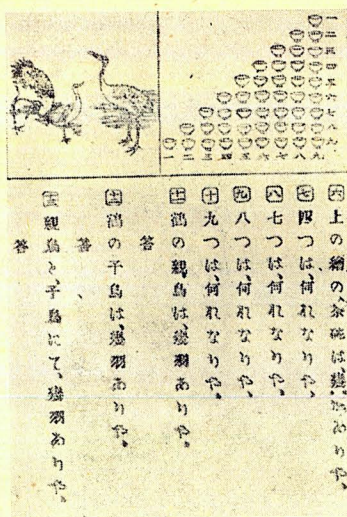 一
二
三
四
五
六
七
八
九
一 二 三 四 五 六 七 八 九
六 上の繪の、茶碗は、幾つありや。
七 四つは、何れなりや。
八 七つは、何れなりや。
九 八つは、何れなりや。
十 九つは、何れなりや。
十一 鶴の親鳥は、幾羽ありや。
答
十二 鶴の子鳥は、幾羽ありや。
答
十三 親鳥と、子鳥にて、幾羽ありや。
答